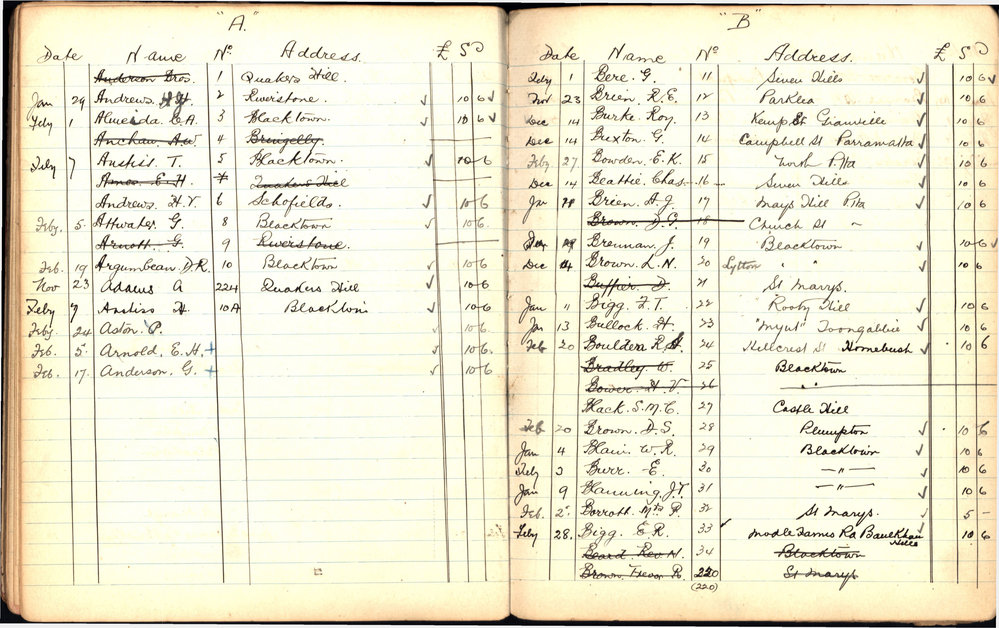 "A."
Date Name No. Address £ S D
Anderson Bros. 1 Quakers Hill.
Jan 29 Andrews. H.J. 2 Riverstone. ✓ 10 6 ✓
Feby 1 Almeida E A. 3 Blacktown. ✓ 10 6 ✓
Anchau A.W. 4 Bringelly
Feby 7 Anshis. T. 5 Blacktown. ✓ 10 6
Amos. E. H. 7 Quakers Hill
Andrews. H.V. 6 Schofields. ✓ 10 6
Feby. 5. Attwater G. 8 Blacktown ✓ 10 6
Arnott. G. 9 Riverstone.
Feb. 19 Argumbeau. D.R. 10 Blacktown ✓ 10 6
Nov 23 Adams A 224 Quakers Hill ✓ 10 6
Feby 7 Anstiss H 10A Blacktown ✓ 10 6
Feby. 24 Aston. P. ✓ 10 6
Feb. 5. Arnold. E. H. + ✓ 10 6
Feb. 17. Anderson. G. + ✓ 10 6
"B"
Date Name No Address £ S D
Feby 1 Bere. G. 11 Seven Hills ✓ 10 6 ✓
Nov 23 Brien. R. E. 12 Parklea ✓ 10 6
Dec 14 Burke. Roy. 13 Kemp St Granville ✓ 10 6
Dec 14 Buxton. G. 14 Campbell St Parramatta ✓ 10 6
Feby. 27 Bowden. E. K. 15 North P/tta ✓ 10 6
Dec 14 Beattie. Chas. 16 Seven Hills ✓ 10 6
Jan Breen. A. J. 17 Mays Hill P/tta ✓ 10 6
Brown. D. G. 18 Church St "
Jan Brennan. J. 19 Blacktown ✓ 10 6 ✓
Dec 14 Brown. L. N. 20 Lytton " " ✓ 10 6
Buffier. D. 21 St Marys.
Jan 11 Bigg. F. T. 22 Rooty Hill ✓ 10 6
Jan 13 Bullock. H. 23 Toongabbie ✓ 10 6
Feb 20 Boulden R. 24 Hillcrest St Homebush ✓ 10 6
Bradley W. 25 Blacktown
Bower. H. V. 26 " "
Black. S. M. C. 27 Castle Hill
Feb 20 Brown. D. S. 28 Plumpton ✓ 10 6
Jan 4 Blain. W. R. 29 Blacktown ✓ 10 6
Feby 3 Burr. E. 30 — " — ✓ 10 6
Jan 9 31 — " — ✓ 10 6
Feb. 2 Borrott. Mrs P. 32 St Marys. ✓ 5 -
Feby 28. Bigg E. R. 33 ✓ Model Farms Rd Baulkham Hills 10 6
Beard Rev. N. 34 Blacktown
Brown Trevor R. 220 St Marys
(220)